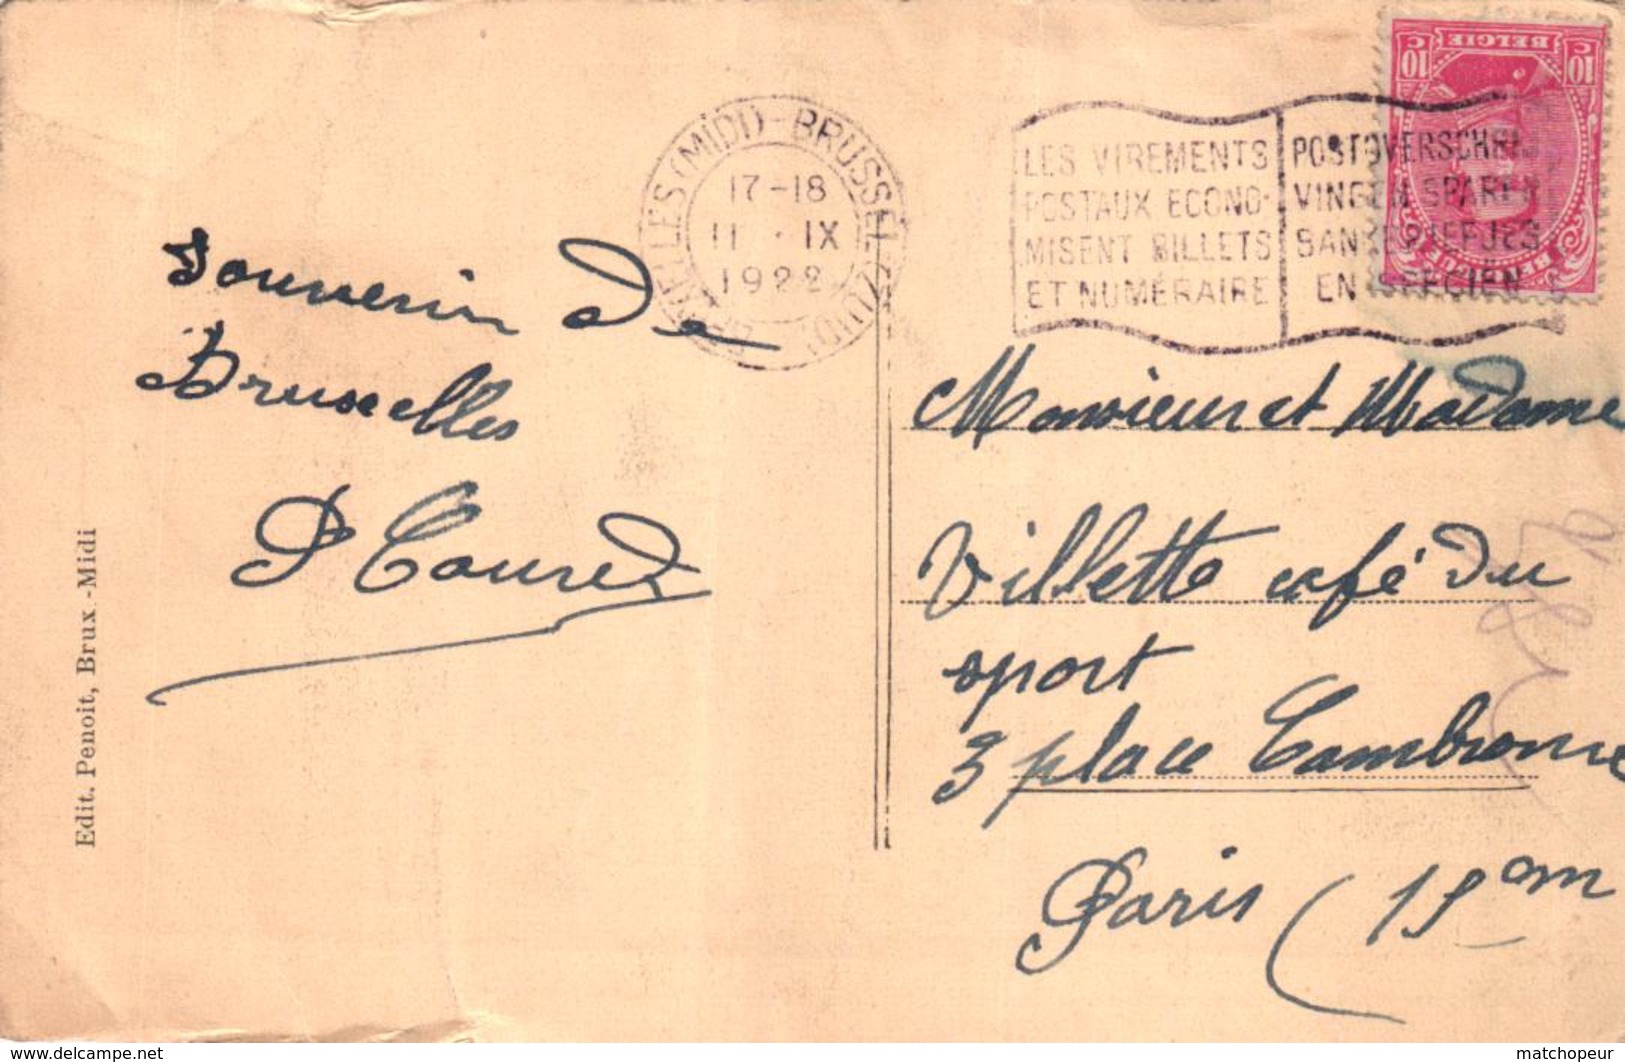 BRUXELLES (MIDI) - BRUSSEL (ZUID)
17-18
11 · IX
1922
LES VIREMENTS
POSTAUX ECONO-
MISENT BILLETS
ET NUMÉRAIRE
POSTOVERSCHRIJ
VINGEN SPAREN
BANKBRIEFJES
EN SPECIËN
10 C BELGIE 10 C
BELGIQUE
Souvenir de
Bruxelles
Edit. Penoit, Brux.-Midi
Monsieur et Madame
Villette café du
sport
3 place Cambronne
Paris (15em
delcampe.net
matchopeur